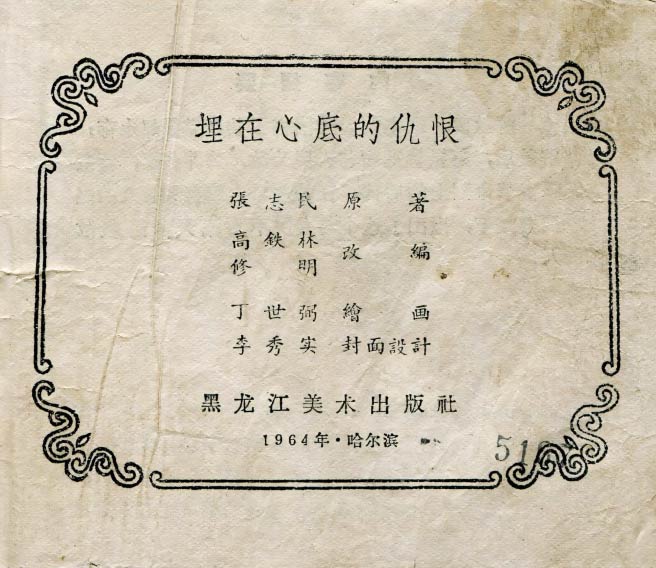 埋在心底的仇恨
張志民 原著
高鉄林
修明 改編
丁世弼 繪画
李秀实 封面設計
黑龙江美术出版社
1964年·哈尔滨